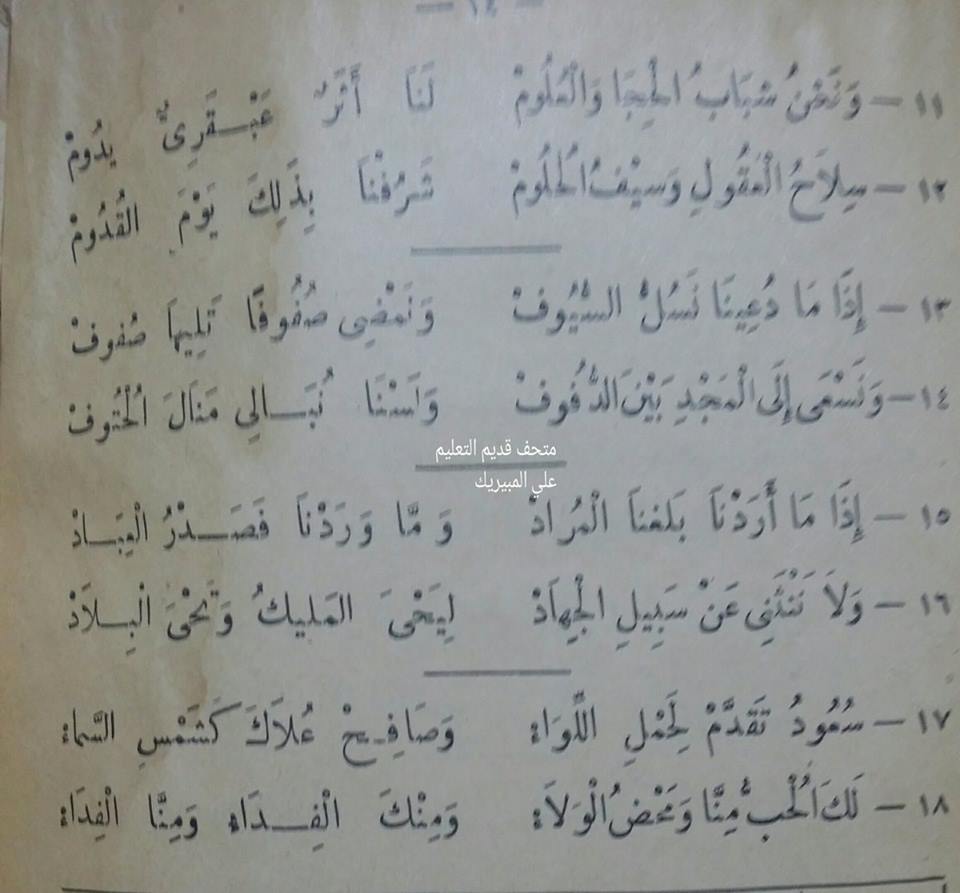 — ١٤ —
١١ — وَنَحْنُ شَبَابُ الْحِجَا وَالْعُلُومْ لَنَا أَثَرٌ عَبْـقَرِىٌّ يدُومْ
١٢ — سِلاَحُ الْعُقُولِ وَسَيْفُ الْحُلُومْ شَرُفْنَا بِذَلِكَ يَوْمَ القُدُومْ
١٣ — إِذَا مَا دُعِينَا نَسُلُّ السُّيُوفْ وَنَمْضِى صُفُوفًا تَلِيهَا صُفوفْ
١٤ — وَنَسْعَى إِلَى الْمَجْدِ بَيْنَ الدُّفُوفْ وَلَسْنَا نُبَـالِي مَنَالَ الْحُتُوفْ
متحف قديم التعليم
علي المبيريك
١٥ — إِذَا مَا أَرَدْنَا بَلَغنَا الْمُرَادْ وَ مَّا وَرَدْنَا فَصَـدْرُ الْعِبَـادْ
١٦ — وَلاَ نَنْثَنِى عَنْ سَبِيلِ الْجِهَادْ لِيَحْىَ المَليكُ وَتَحْىَ الْبِـلاَدْ
١٧ — سُعُودُ تَقَدَّمْ لِحَمْلِ اللِّوَاءِ وَصَافِـحْ عُلاَكَ كَشَمْسِ السَّمَاءِ
١٨ — لَكَ الْحُبُّ مِنَّا وَمَحْضُ الْوَلاَءِ وَمِنْكَ الْفِـدَاءِ وَمِنَّا الْفِدَاءِ